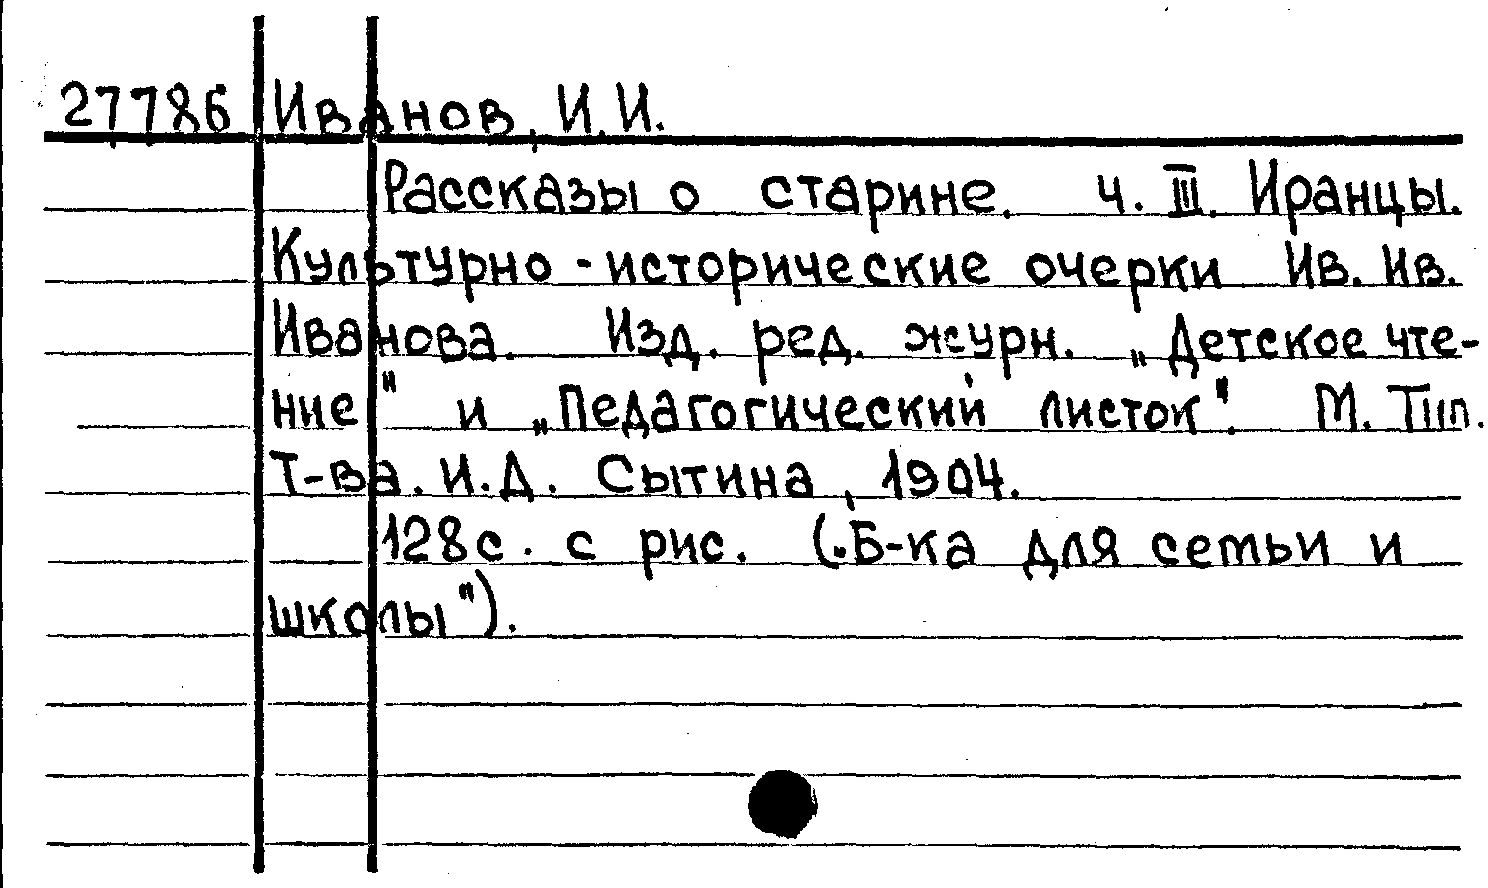 27786 Иванов, И.И.
Рассказы о старине. ч. III. Иранцы.
Культурно-исторические очерки Ив. Ив.
Иванова. Изд. ред. журн. „Детское чте-
ние" и „Педагогический листок". М. Тип.
Т-ва. И.Д. Сытина, 1904.
128с. с рис. („Б-ка для семьи и
школы").